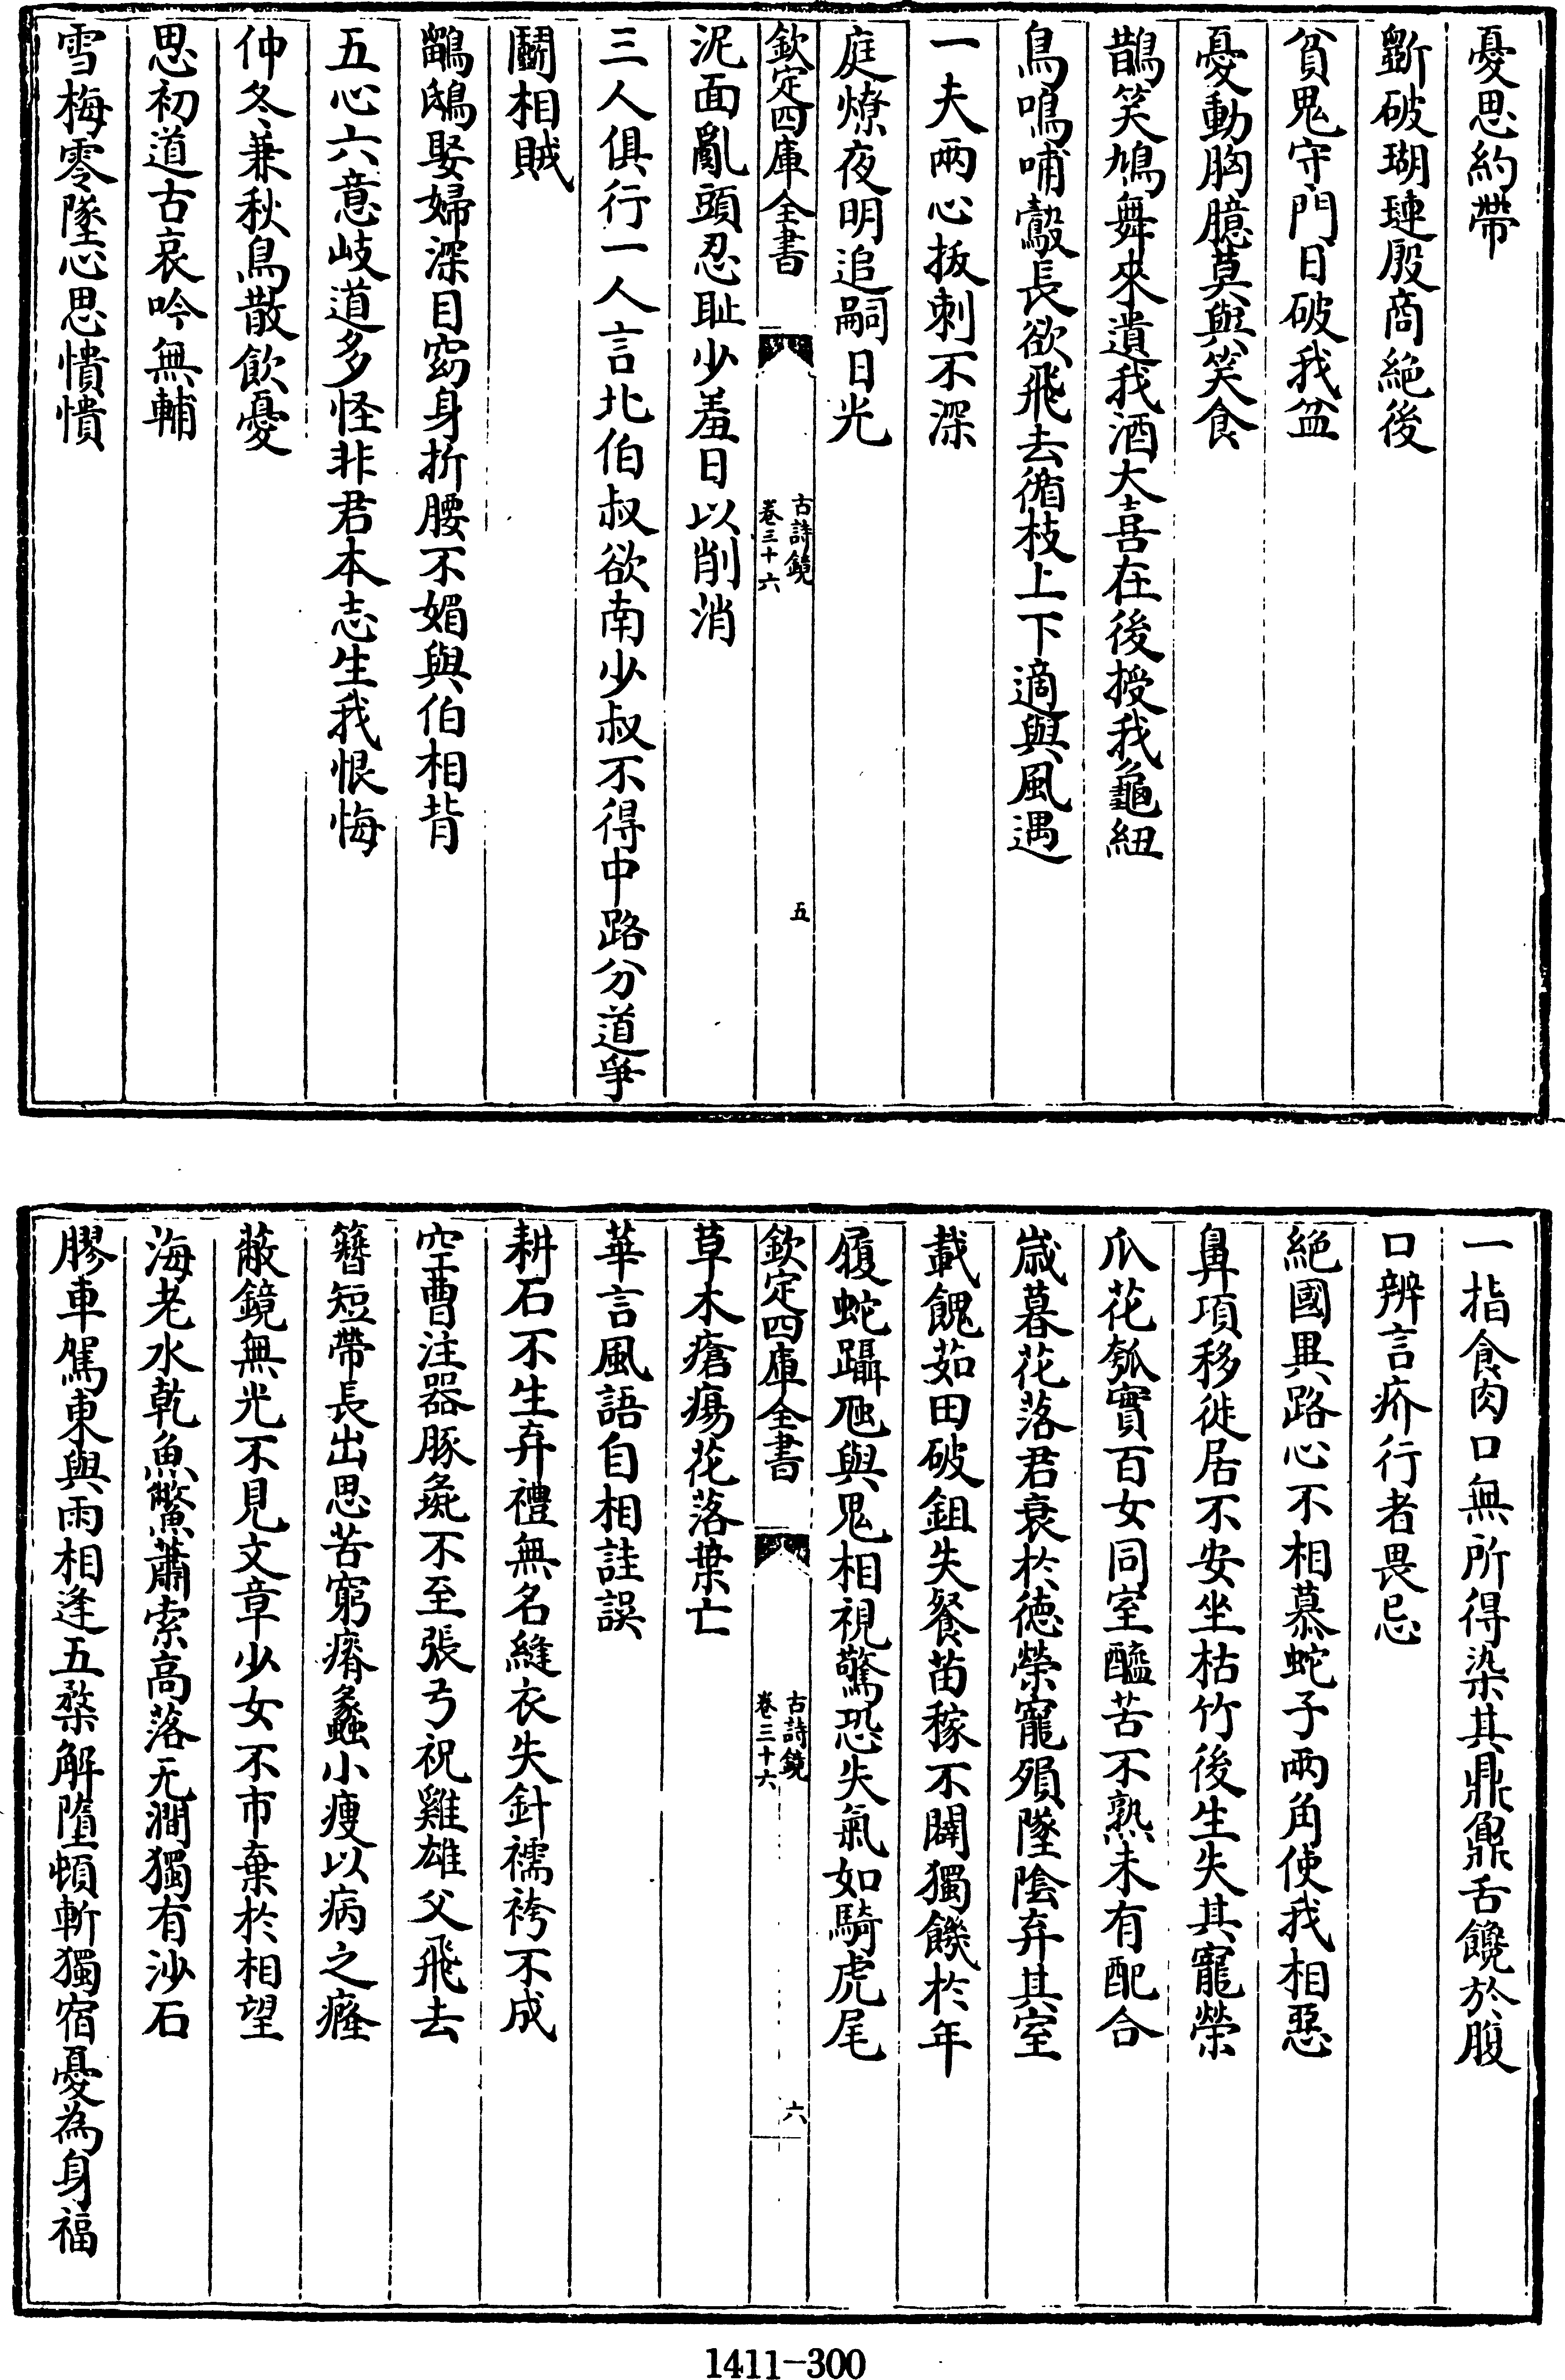 憂思約帶
斷破瑚璉殷商絕後
貧鬼守門日破我盆
憂動胸臆莫與笑食
鵲笑鳩舞來遺我酒大喜在後授我龜紐
鳥鳴哺鷇長欲飛去循枝上下適與風遇
一夫兩心拔刺不深
庭燎夜明追嗣日光
欽定四庫全書
古詩鏡
卷三十六
五
泥面亂頭忍恥少羞日以削消
三人俱行一人言北伯叔欲南少叔不得中路分道爭
鬭相賊
鸕鴟娶婦深目窈身折腰不媚與伯相背
五心六意岐道多怪非君本志生我恨悔
仲冬兼秋鳥散飲憂
思初道古哀吟無輔
雪梅零墜心思憒憒
一指食肉口無所得染其鼎鼐舌饞於腹
口辨言疥行者畏忌
絕國異路心不相慕蛇子兩角使我相惡
鼻項移徙居不安坐枯竹後生失其寵榮
爪花瓠實百女同室醯苦不熟未有配合
歲暮花落君衰於德榮寵殞墜陰弃其室
載餽茹田破鉏失餐苗稼不闢獨饑於年
履蛇躡虺與鬼相視驚恐失氣如騎虎尾
欽定四庫全書
古詩鏡
卷三十六
六
草木瘡瘍花落葉亡
華言風語自相詿誤
耕石不生弃禮無名縫衣失針襦袴不成
空曹注器豚彘不至張弓祝雞雄父飛去
簪短帶長出思苦窮瘠蠡小瘦以病之癃
蔽鏡無光不見文章少女不市棄於相望
海老水乾魚鱉蕭索高落无澗獨有沙石
膠車駕東與雨相逢五楘解墮頓斬獨宿憂為身福
1411-300